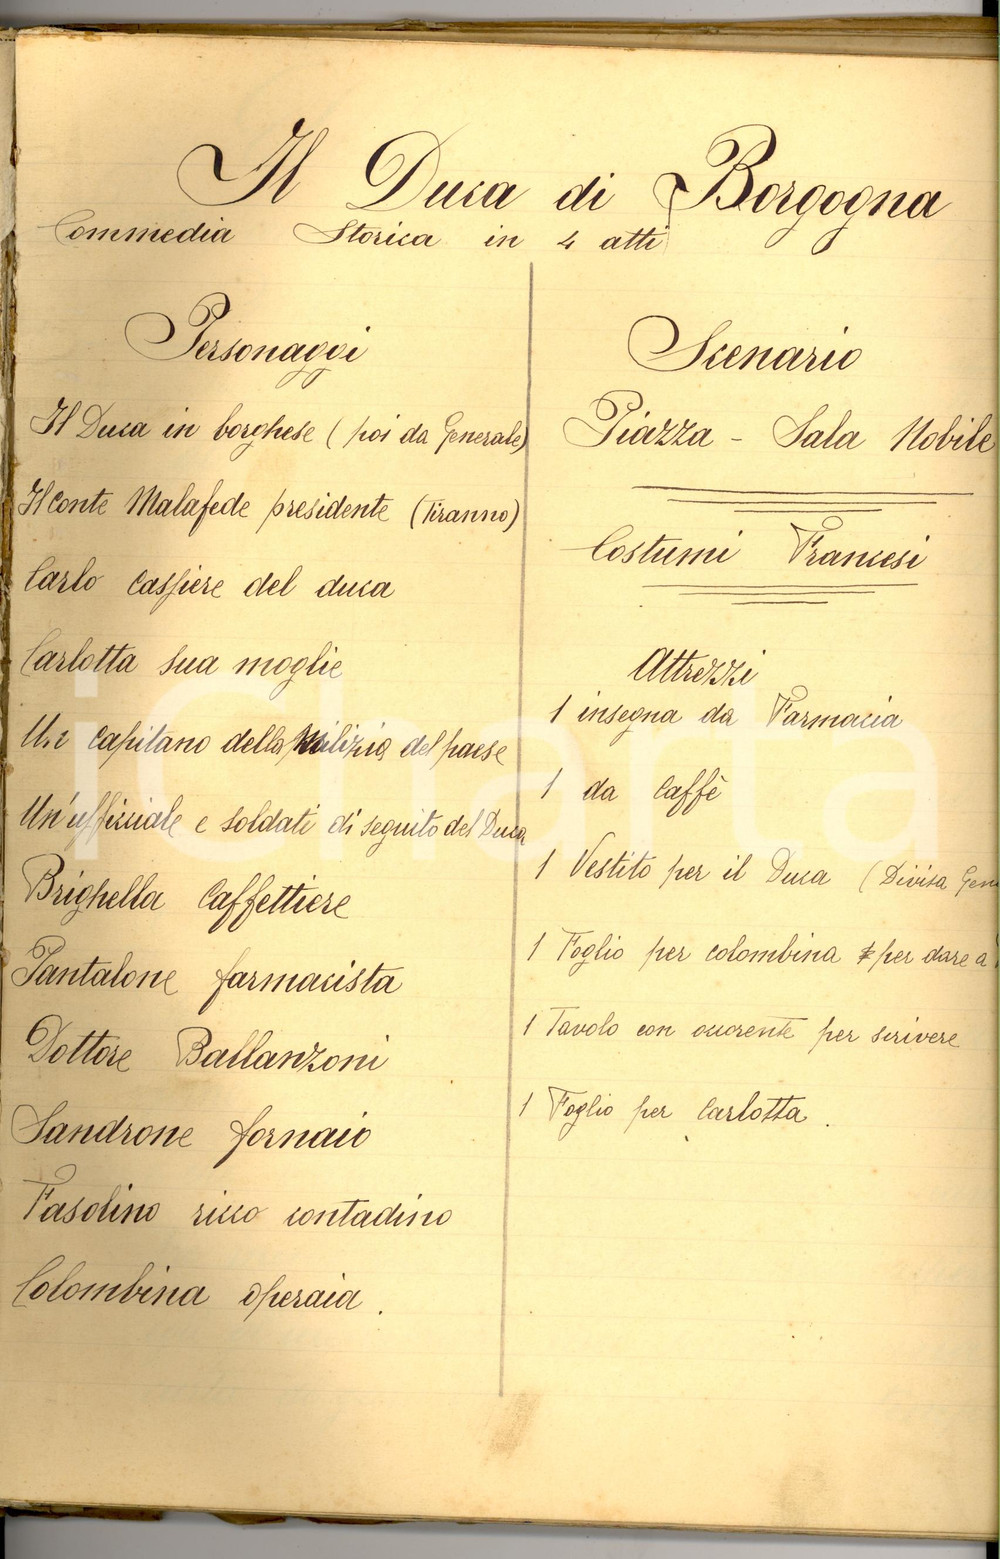 Il Duca di Borgogna
Commedia Storica in 4 atti
Personaggi
Il Duca in borghese (poi da Generale)
Il Conte Malafede presidente (Tiranno)
Carlo Cassiere del duca
Carlotta sua moglie
Un capitano della Milizia del paese
Un'uffiziale e soldati di seguito del Duca
Brighella Caffettiere
Pantalone farmacista
Dottore Ballanzoni
Sandrone fornaio
Fasolino ricco contadino
Colombina operaia.
Scenario
Piazza - Sala Nobile
Costumi Francesi
Attrezzi
1 insegna da Farmacia
1 da Caffè
1 Vestito per il Duca (Divisa Gen
1 Foglio per colombina per dare a
1 Tavolo con occorente per scrivere
1 Foglio per Carlotta.
iCharta